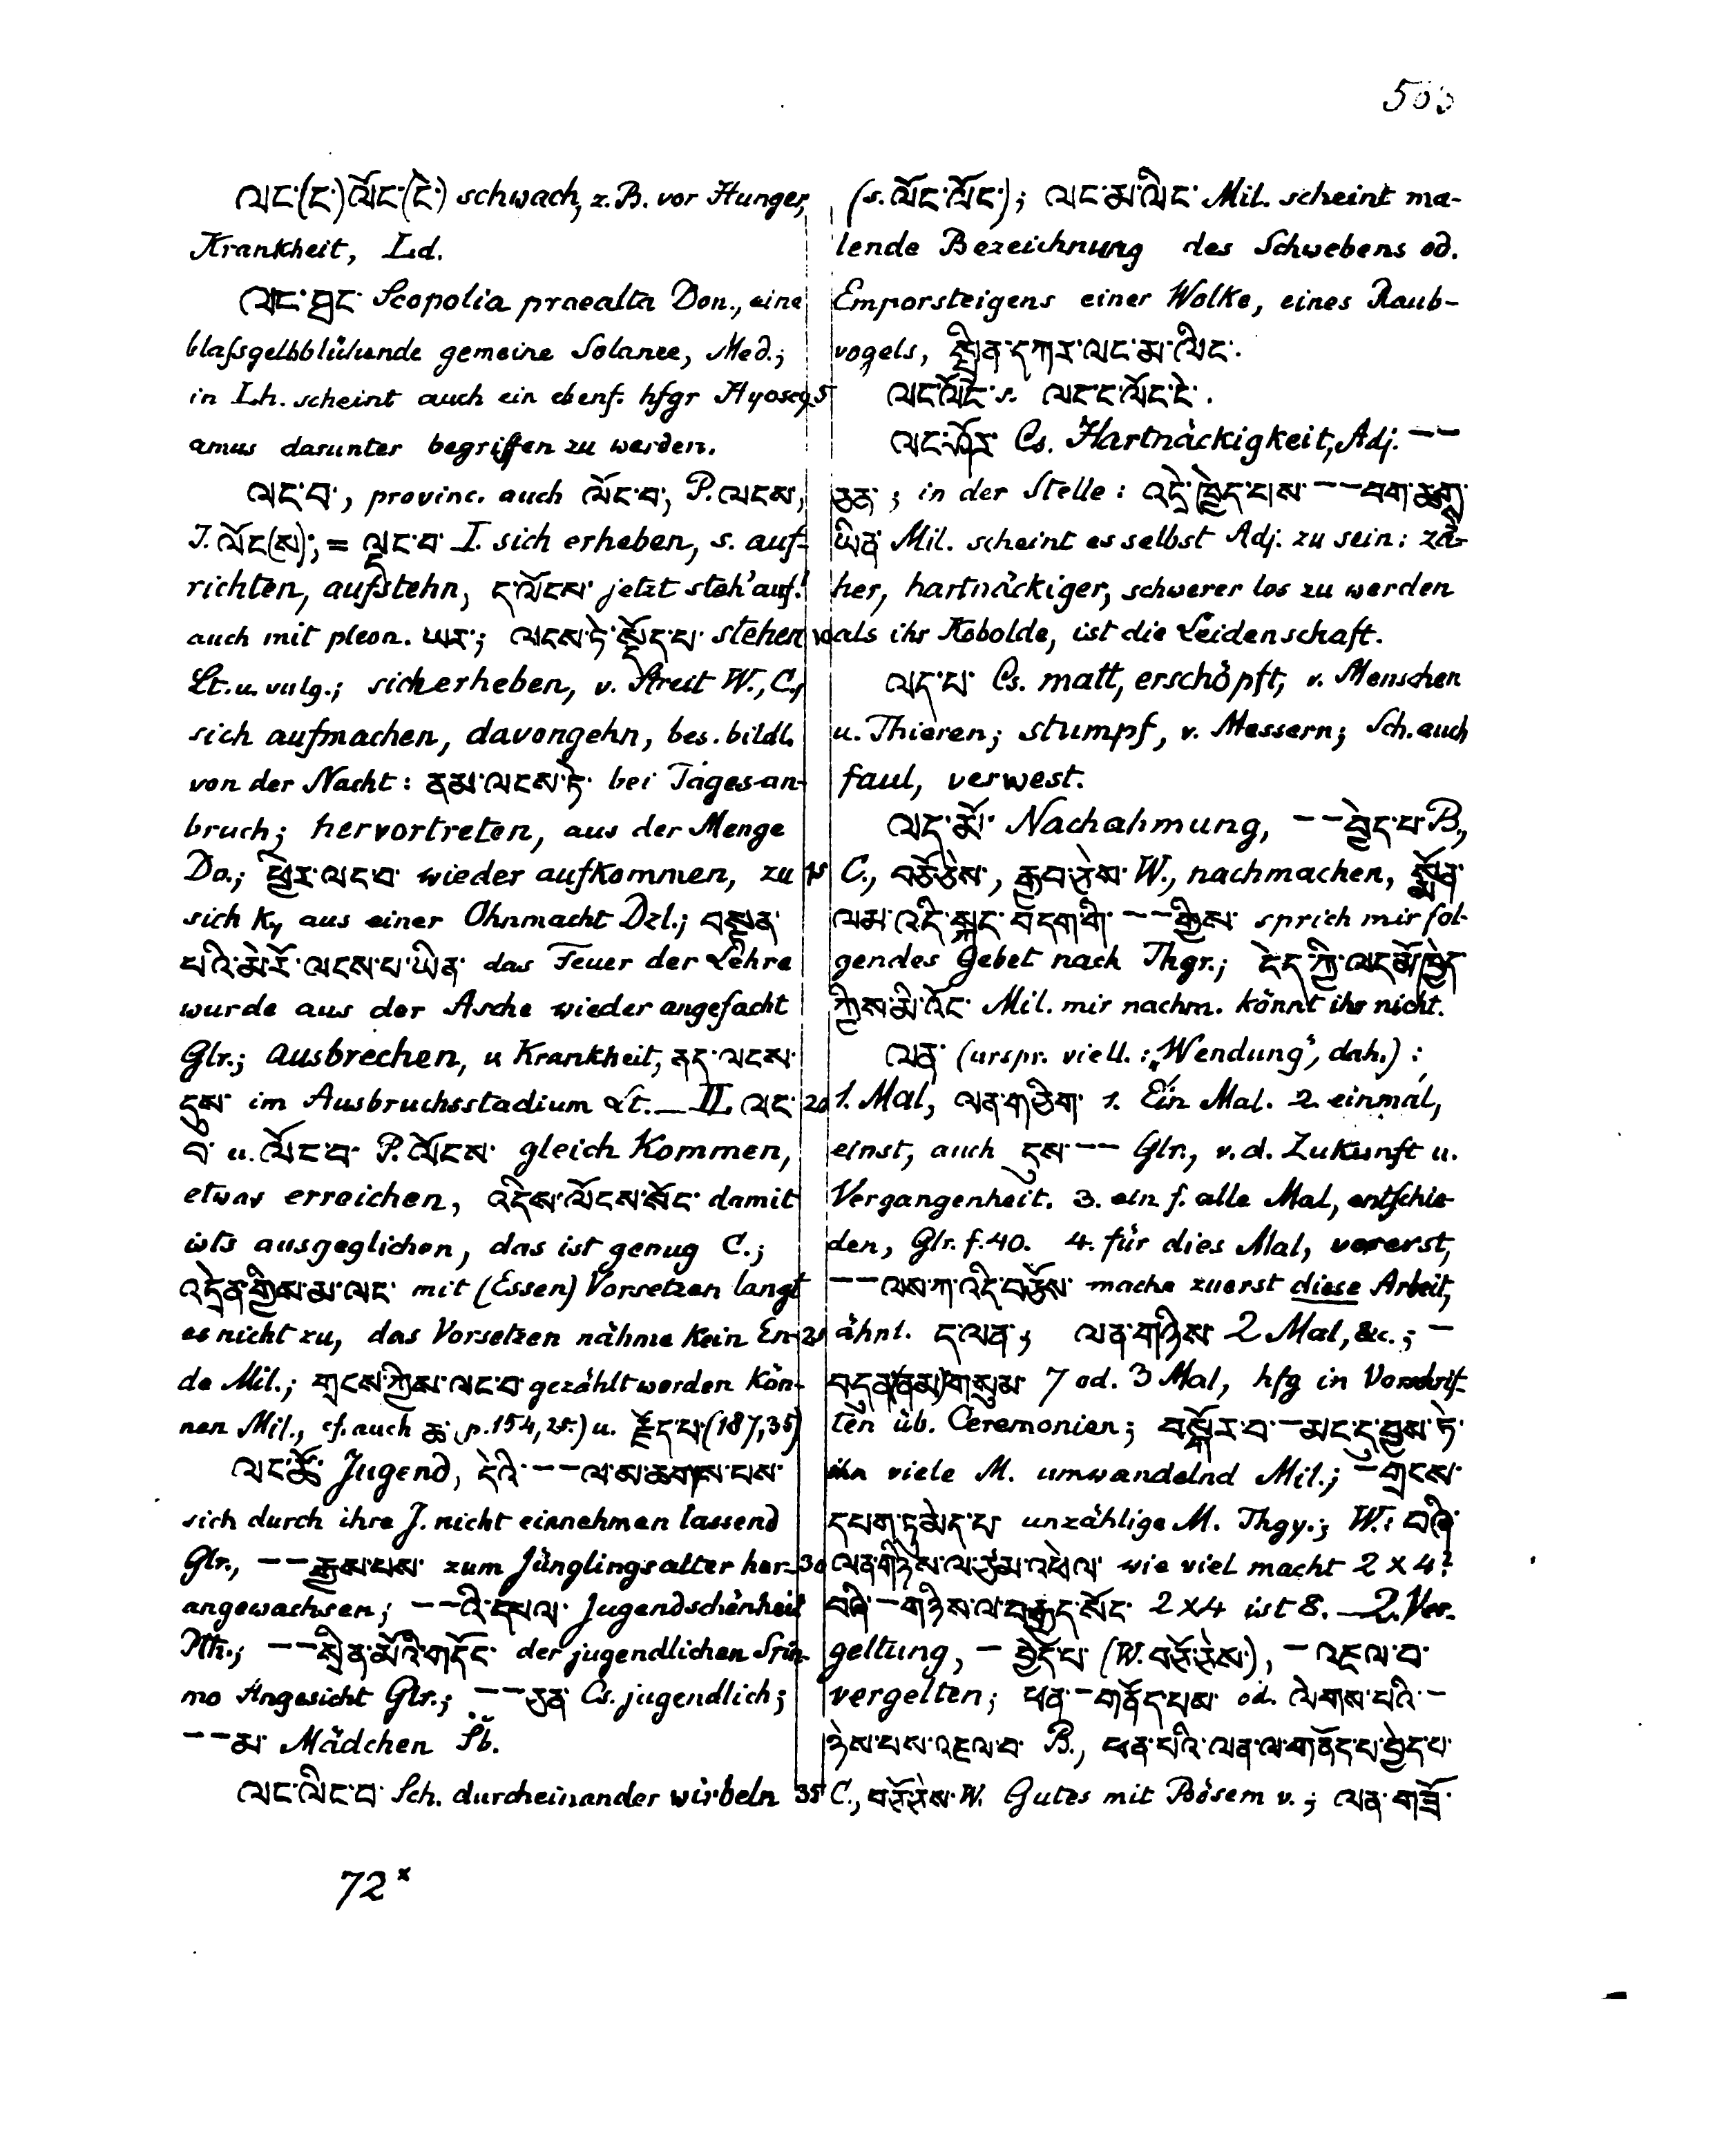 ལང་(ང་)ལོང་(ངེ་) schwach, z.B. vor Hunger,
Krankheit, Ld.
ལང་ཐང་ Scopolia praealta Don., eine
blaßgelbblühende gemeine Solanee, Med.;
in Lh. scheint auch ein ebenf. hfgr Hyoscy-
amus darunter begriffen zu werden.
ལང་བ་, provinc. auch ལོང་བ་, P. ལངས་,
J. ལོང་(ས); = ལྡང་བ་ I. sich erheben, s. auf-
richten, aufstehn, ད་ལོངས་ jetzt steh' auf!
auch mit pleon. ཡར་; ལངས་ཏེ་སྡོད་པ་ stehen
Lt. u. vulg.; sich erheben, v. Streit W., C.,
sich aufmachen, davongehn, bes. bildl.
von der Nacht: ནམ་ལངས་ཏེ་ bei Tagesan-
bruch; hervortreten, aus der Menge
Do.; ཕྱིར་ལང་བ་ wieder aufkommen, zu
sich k., aus einer Ohnmacht Dzl.; བསྟན་
པའི་མེ་རོ་ལངས་པ་ཡིན་ das Feuer der Lehre
wurde aus der Asche wieder angefacht
Glr.; ausbrechen, v. Krankheit, ནད་ལངས་
དུས་ im Ausbruchsstadium Lt. — II. ལང་
བ་ u. ལོང་བ་ P. ལོངས་ gleich kommen,
etwas erreichen, འདིས་ལོངས་སོང་ damit
ists ausgeglichen, das ist genug C.;
འདྲེན་གྱིས་མ་ལང་ mit (Essen) Vorsetzen langt
es nicht zu, das Vorsetzen nähme kein En-
de Mil.; གྲངས་ཀྱིས་ལང་བ་ gezählt werden kön-
nen Mil., cf. auch ཆ་ (p. 154, 25.) u. རྫོད་པ་ (187, 35)
ལང་ཚོ་ Jugend, དེའི་ – – ལ་མ་ཆགས་པས་
sich durch ihre J. nicht einnehmen lassend
Glr., – – རྒྱས་པས་ zum Jünglingsalter her-
angewachsen; – – འི་དཔལ་ Jugendschönheit
Pth.; – – སྲིན་མོའི་གདོང་ der jugendlichen Srin-
mo Angesicht Glr.; – – ཅན་ Cs. jugendlich;
– – མ་ Mädchen
ལང་ལིང་བ་ Sch. durcheinander wirbeln
(s. ལོང་ལོང་); ལང་མ་ལིང་ Mil. scheint ma-
lende Bezeichnung des Schwebens od.
Emporsteigens einer Wolke, eines Raub-
vogels, སྤྲིན་དཀར་ལང་མ་ལིང་.
ལང་ལོང་ s. ལང་ང་ལོང་ངེ་.
ལང་ཤོར་ Cs. Hartnäckigkeit, Adj. – –
ཅན་; in der Stelle: འདྲེ་ཁྱེད་པས་ – – བག་ཆགས་
ཡིན་ Mil. scheint es selbst Adj. zu sein: zä-
her, hartnäckiger, schwerer los zu werden
als ihr Kobolde, ist die Leidenschaft.
ལད་པ་ Cs. matt, erschöpft, v. Menschen
u. Thieren; stumpf, v. Messern; Sch. auch
faul, verwest.
ལད་མོ་ Nachahmung, – – བྱེད་པ་ B.,
C., བཅོ་ཅེས་, རྒྱབ་ཅེས་ W., nachmachen, སྨོན་
ལམ་འདི་སྐད་བདག་གི་ – – གྱིས་ sprich mir fol-
gendes Gebet nach Thgr.; ངེད་ཀྱི་ལད་མོ་ཁྱེད་
ཀྱིས་མི་འོང་ Mil. mir nachm. könnt ihr nicht.
ལན་ (urspr. viell.: „Wendung", dah.):
1. Mal, ལན་གཅིག་ 1. Ein Mal. 2. einmal,
einst, auch དུས་ – – Glr., v. d. Zukunft u.
Vergangenheit. 3. ein f. alle Mal, entschie-
den, Glr. f. 40. 4. für dies Mal, vorerst,
– – ལས་ཀ་འདི་བཅོས་ mache zuerst diese Arbeit,
ähnl. ད་ལན་; ལན་གཉིས་ 2 Mal, &c.; –
བདུན་(ནམ་)གསུམ་ 7 od. 3 Mal, hfg in Vorschrif-
ten üb. Ceremonien; བསྐོར་བ་ – མང་དུ་བྱས་ཏེ་
viele M. umwandelnd Mil.; – གྲངས་
དཔག་ཏུ་མེད་པ་ unzählige M. Thgy.; W.: བཞི་
ལན་གཉིས་ལ་ཙམ་འཕེལ་ wie viel macht 2 x 4?
བཞི་ – གཉིས་ལ་བརྒྱད་སོང་ 2 x 4 ist 8. — 2. Ver-
geltung, – བྱེད་པ་ (W. བཅོ་ཅེས་), – འཇལ་བ་
vergelten; ཕན་ – གནོད་པས་ od. ལེགས་པའི་ –
ཉེས་པས་འཇལ་བ་ B., ཕན་པའི་ལན་ལ་གནོད་པ་བྱེད་པ་
C., བཅོ་ཅེས་ W. Gutes mit Bösem v.; ལན་གཟློ་
72*